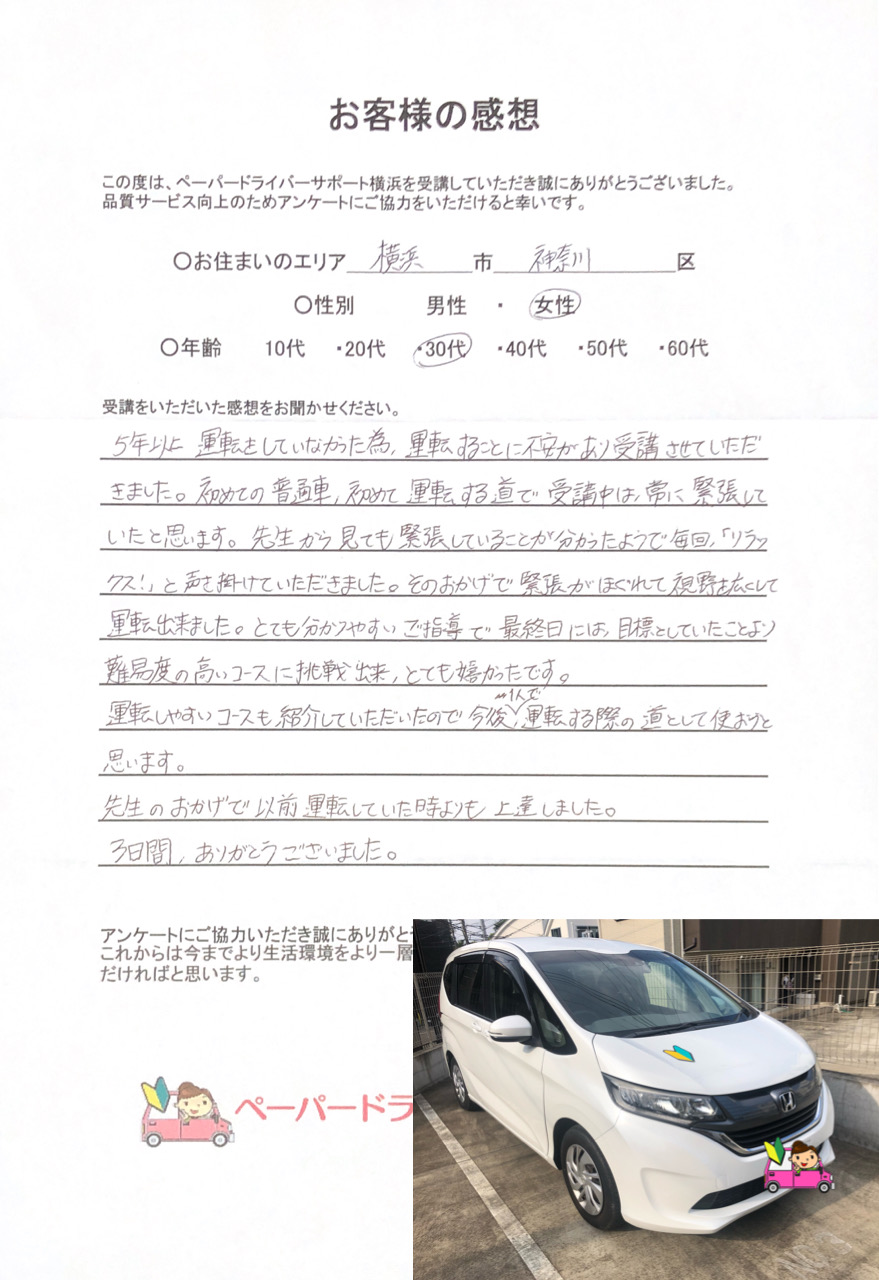 お客様の感想
この度は、ペーパードライバーサポート横浜を受講していただき誠にありがとうございました。
品質サービス向上のためアンケートにご協力をいただけると幸いです。
〇お住まいのエリア 横浜 市 神奈川 区
〇性別 男性 ・ 女性
〇年齢 10代 ・20代 ・30代 ・40代 ・50代 ・60代
受講をいただいた感想をお聞かせください。
5年以上 運転をしていなかった為、運転することに不安があり受講させていただ
きました。初めての普通車、初めて運転する道で受講中は、常に緊張して
いたと思います。先生から見ても緊張していることが分かったようで毎回、「リラッ
クス!」と声を掛けていただきました。そのおかげで緊張がほぐれて視野を広くして
運転出来ました。とても分かりやすいご指導で最終日には、目標としていたことより
難易度の高いコースに挑戦出来、とても嬉かったです。
運転しやすいコースも紹介していただいたので今後、1人で運転する際の道として使おうと
思います。
先生のおかげで以前運転していた時よりも上達しました。
3日間、ありがとうございました。
アンケートにご協力いただき誠にありがと
これからは今までより生活環境をより一層
だければと思います。
ペーパードラ